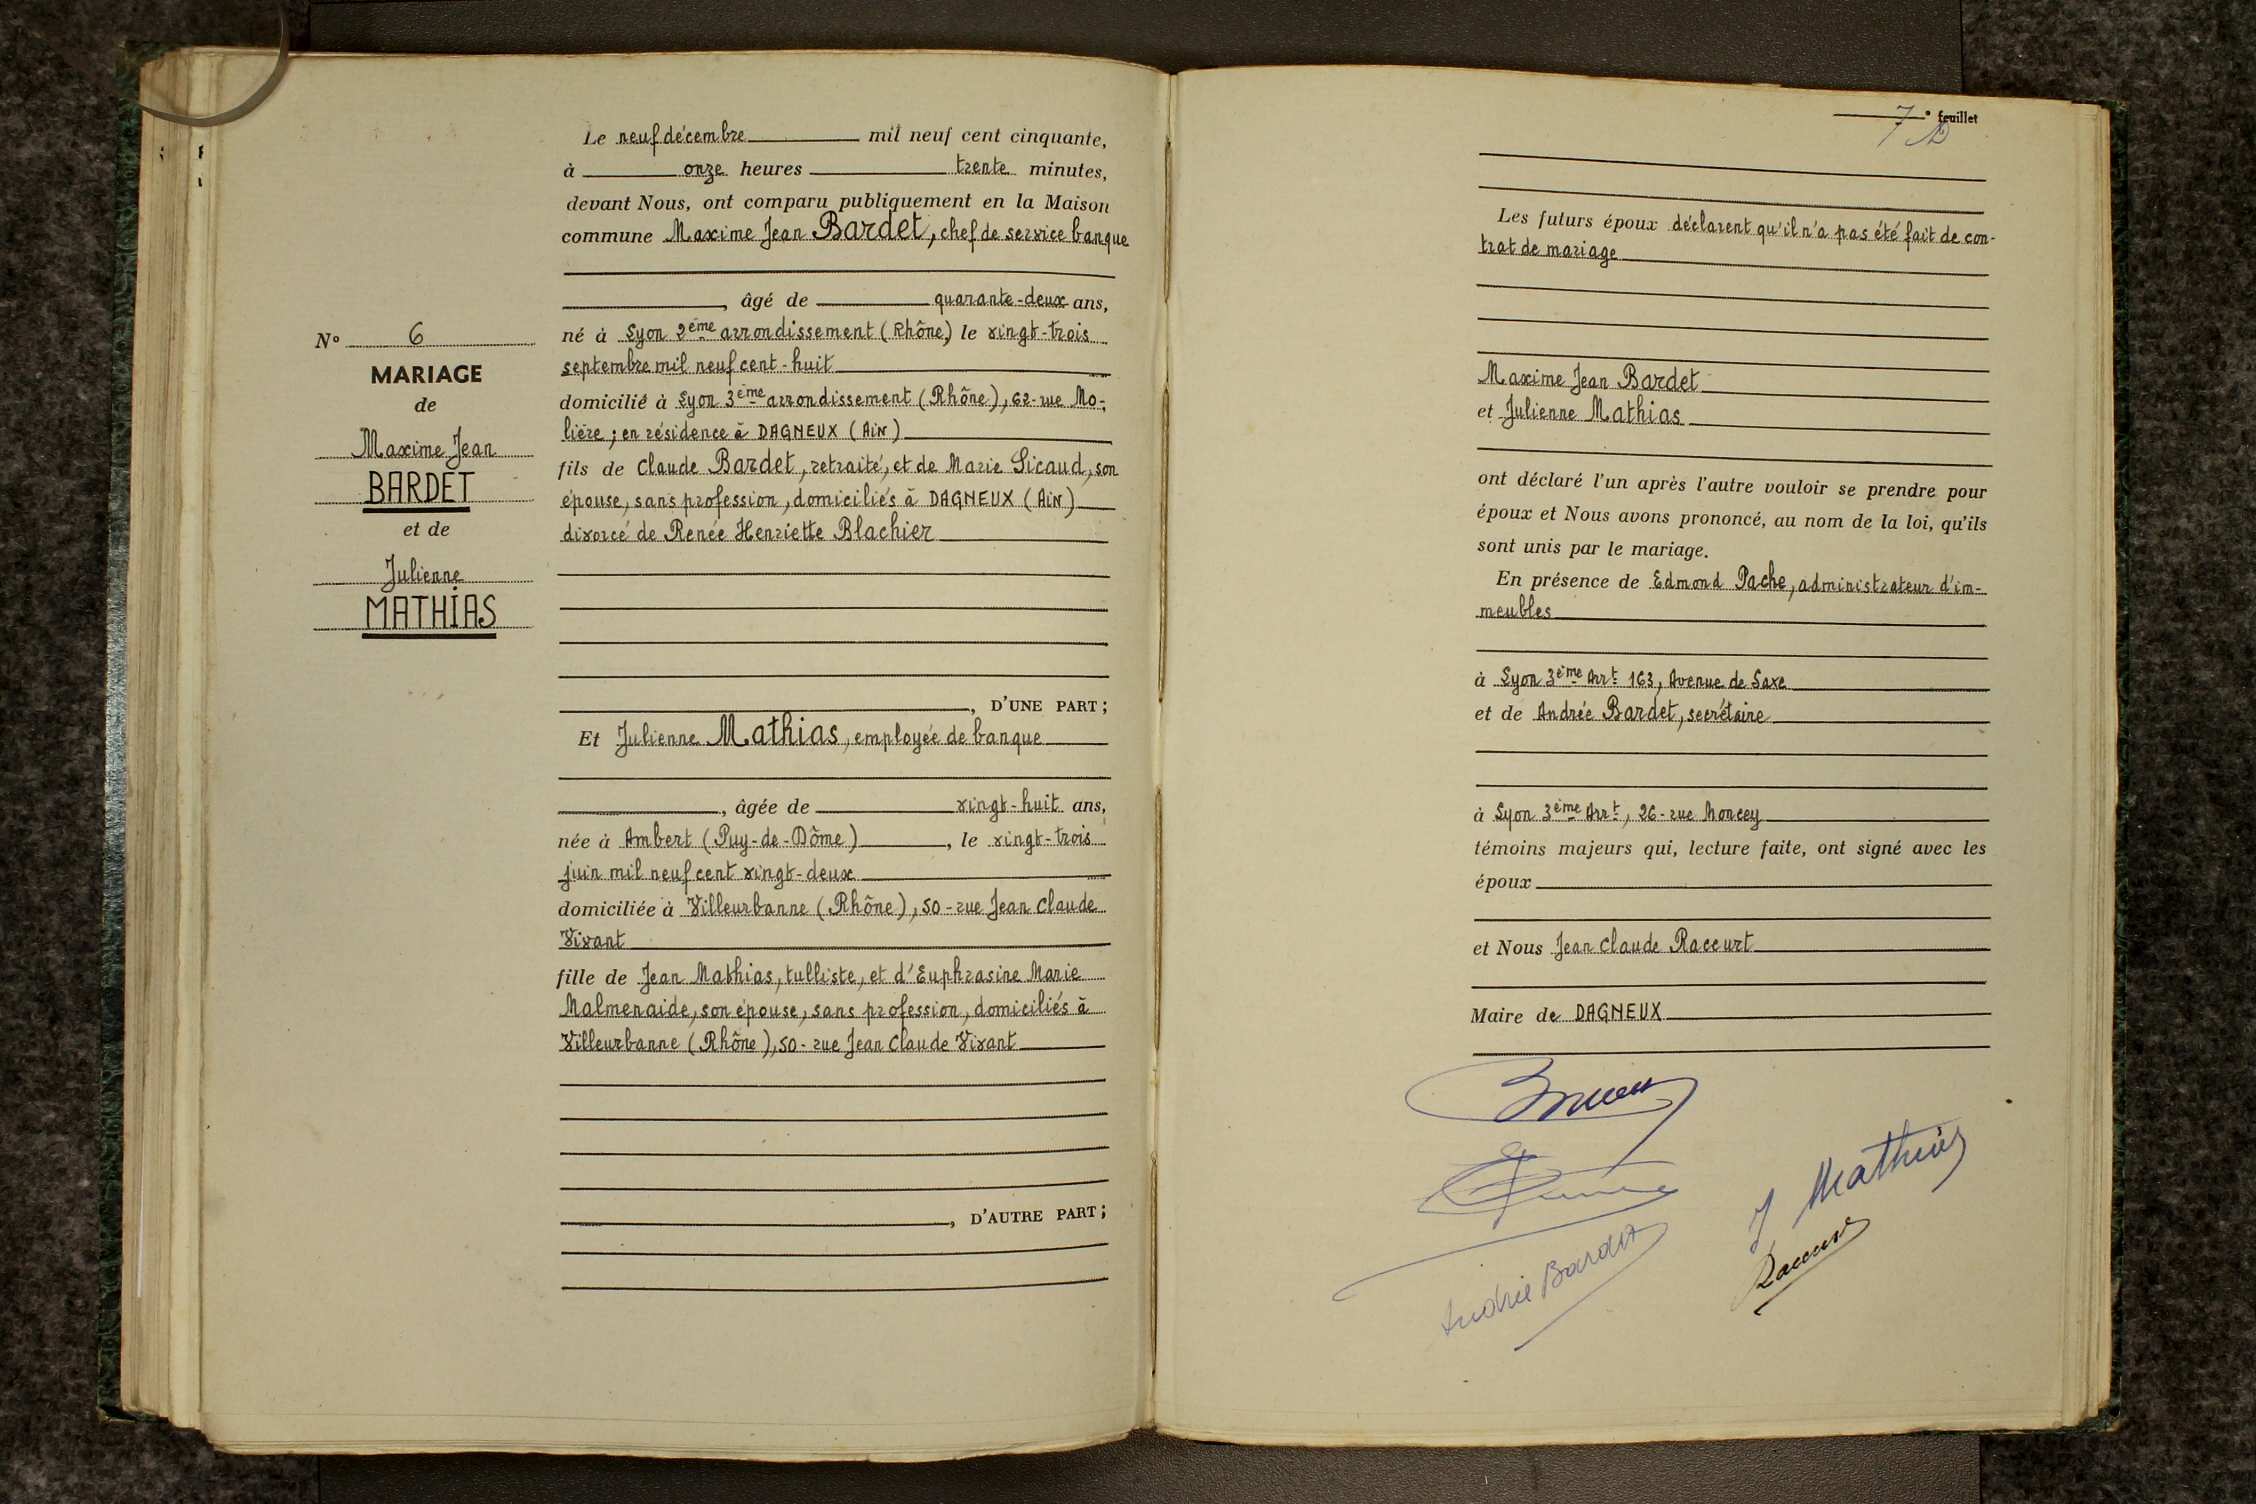 Le neuf décembre mil neuf cent cinquante,
à onze heures trente minutes,
devant Nous, ont comparu publiquement en la Maison
commune Maxime Jean Bardet, chef de service banque
, âgé de quarante-deux ans,
né à Lyon 2ème arrondissement (Rhône) le vingt-trois
septembre mil neuf cent-huit
domicilié à Lyon 3ème arrondissement (Rhône), 62-rue Mo-
lière; en résidence à DAGNEUX (AiN)
fils de Claude Bardet, retraité, et de Marie Sicaud, son
épouse, sans profession, domiciliés à DAGNEUX (AiN)
divorcé de Renée Henriette Blachier
, D'UNE PART;
Et Julienne Mathias, employée de banque
, âgée de vingt-huit ans,
née à Ambert (Puy-de-Dôme), le vingt-trois
juin mil neuf cent vingt-deux
domiciliée à Villeurbanne (Rhône), 50-rue Jean Claude
Vivant
fille de Jean Mathias, tulliste, et d'Euphrasine Marie
Malmenaide, son épouse, sans profession, domiciliés à
Villeurbanne (Rhône), 50-rue Jean Claude Vivant
, D'AUTRE PART;
N° 6
MARIAGE
de
Maxime Jean
BARDET
et de
Julienne
MATHiAS
7 ° feuillet
Les futurs époux déclarent qu'il n'a pas été fait de con-
trat de mariage
Maxime Jean Bardet
et Julienne Mathias
ont déclaré l'un après l'autre vouloir se prendre pour
époux et Nous avons prononcé, au nom de la loi, qu'ils
sont unis par le mariage.
En présence de Edmond Pache, administrateur d'im-
meubles
à Lyon 3ème Arrt 163, Avenue de Saxe
et de Andrée Bardet, secrétaire
à Lyon 3ème Arrt, 26-rue Moncey
témoins majeurs qui, lecture faite, ont signé avec les
époux
et Nous Jean Claude Raccurt
Maire de DAGNEUX
J Mathias
Andrée Bardet
Raccurt